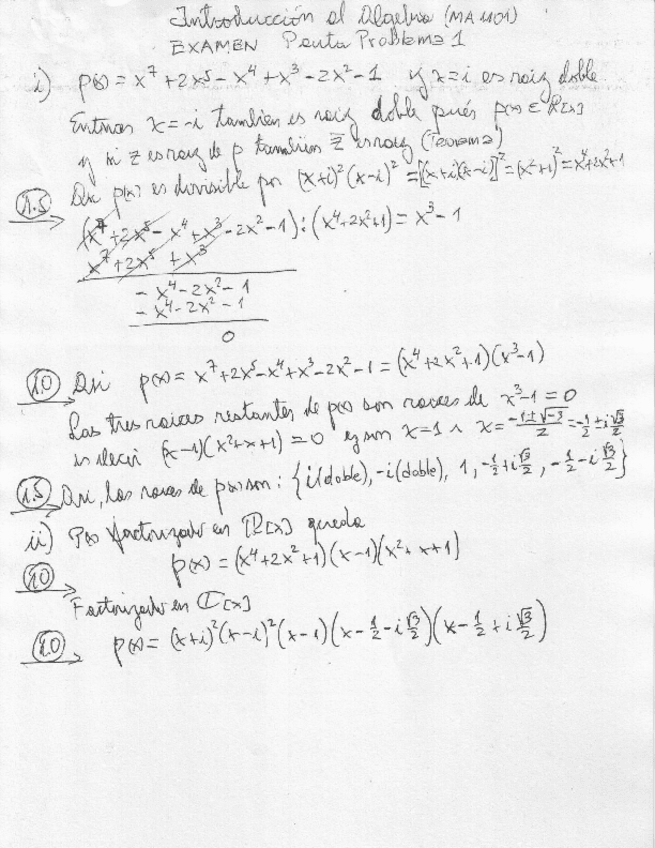 Introducción al Algebra (MA1101)
EXAMEN Pauta Problema 1
i) p(x) = x⁷ + 2x⁵ - x⁴ + x³ - 2x² - 1 y x = i es raiz doble.
Entonces x = -i tambien es raiz doble pués p(x) ∈ ℝ[x]
y si z es raiz de p tambien z̄ es raiz (Teorema)
1.5 Asi p(x) es divisible por (x+i)² (x-i)² = [(x+i)(x-i)]² = (x²+1)² = x⁴+2x²+1
(x⁷ + 2x⁵ - x⁴ + x³ - 2x² - 1) : (x⁴ + 2x² + 1) = x³ - 1
x⁷ + 2x⁵ + x³
- x⁴ - 2x² - 1
- x⁴ - 2x² - 1
0
1.0 Asi p(x) = x⁷ + 2x⁵ - x⁴ + x³ - 2x² - 1 = (x⁴ + 2x² + 1)(x³ - 1)
Las tres raices restantes de p(x) son raices de x³ - 1 = 0
es decir (x-1)(x²+x+1) = 0 y son x = 1 ∧ x = (-1±√-3)/2 = -1/2 ± i√3/2
1.5 Asi, las raices de p(x) son: {i(doble), -i(doble), 1, -1/2 + i√3/2, -1/2 - i√3/2}
ii) P(x) factorizado en ℝ[x] queda
1.0 p(x) = (x⁴ + 2x² + 1)(x-1)(x² + x + 1)
Factorizado en ℂ[x]
1.0 p(x) = (x+i)² (x-i)² (x-1)(x - 1/2 - i√3/2)(x - 1/2 + i√3/2)